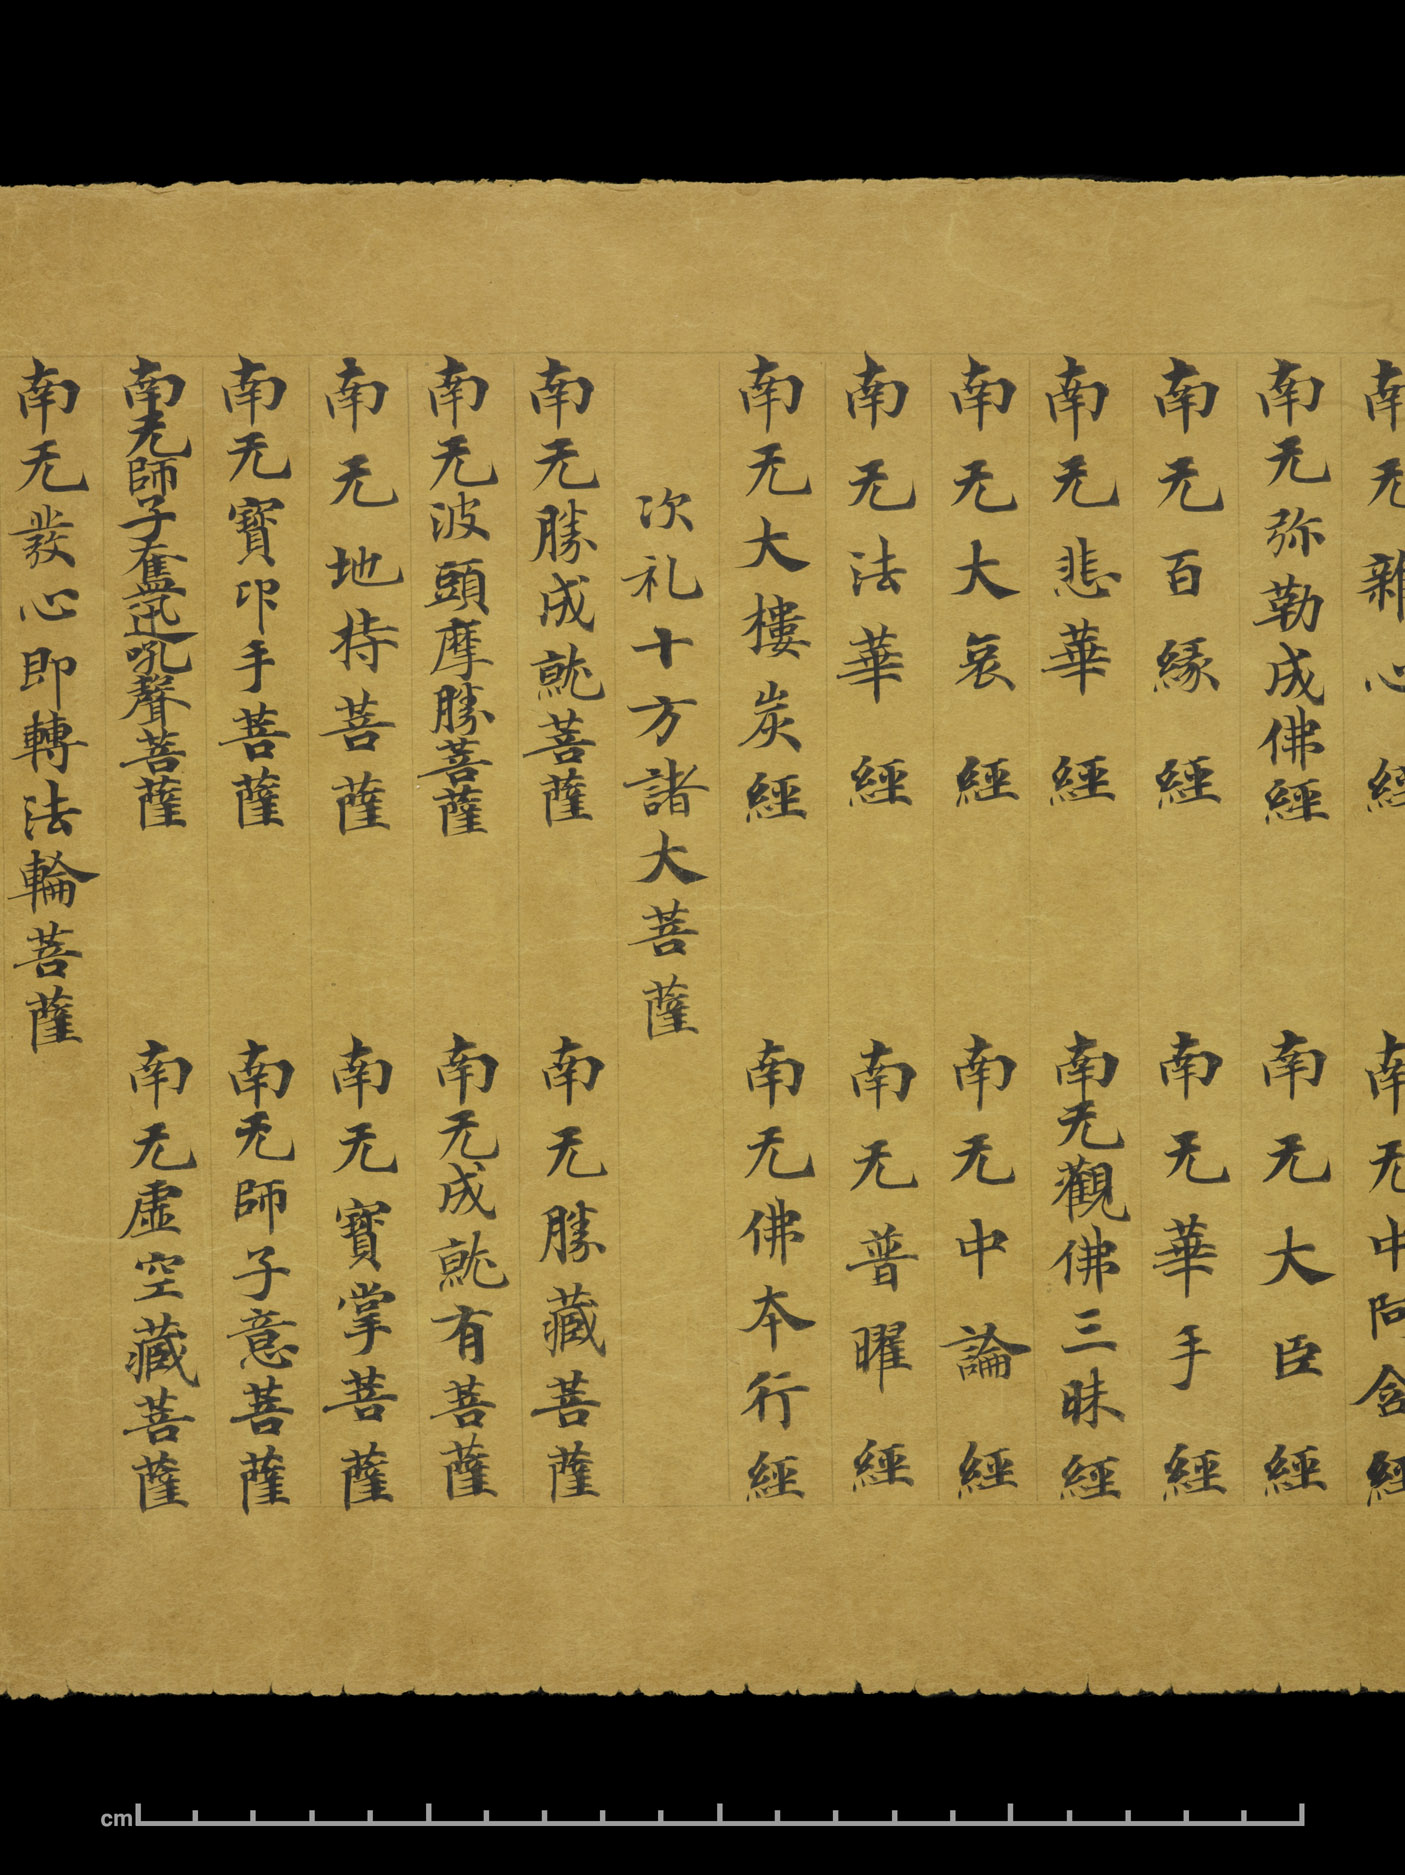 南无雜心經　南无中阿含經
南无弥勒成佛經　南无大臣經
南无百緣經　南无華手經
南无悲華經　南无觀佛三昧經
南无大哀經　南无中論經
南无法華經　南无普曜經
南无大樓炭經　南无佛本行經
次礼十方諸大菩薩
南无勝成就菩薩　南无勝藏菩薩
南无波頭摩勝菩薩　南无成就有菩薩
南无地持菩薩　南无寶掌菩薩
南无寶印手菩薩　南无師子意菩薩
南无師子奮迅吼聲菩薩　南无虛空藏菩薩
南无發心即轉法輪菩薩
cm